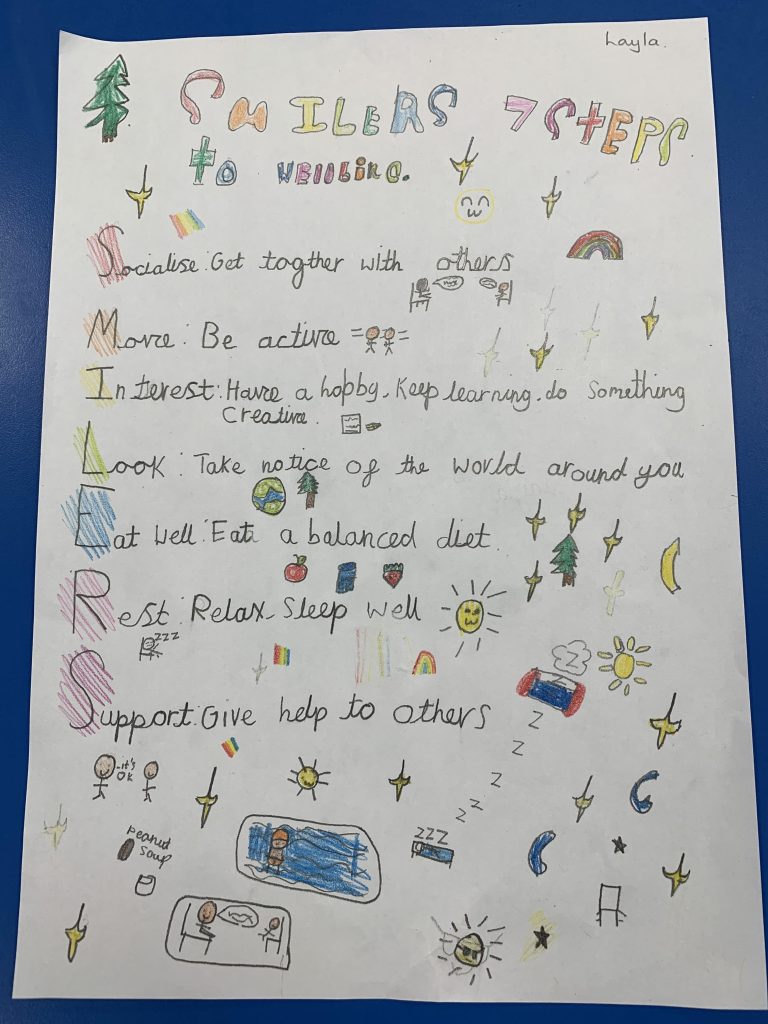 Layla.
SMILERS 7 STEPS
to WEllBiNG.
Socialise: Get togther with others
Move: Be active
Interest: Have a hobby. Keep learning. do Something
Creative.
Look: Take notice of the world around you
Eat well: Eat a balanced diet.
Rest: Relax. Sleep well
zzz
Z
Support: Give help to others
Z
Z
it's
OK
Z
Z
Z
Peanut
Soup
ZZZ